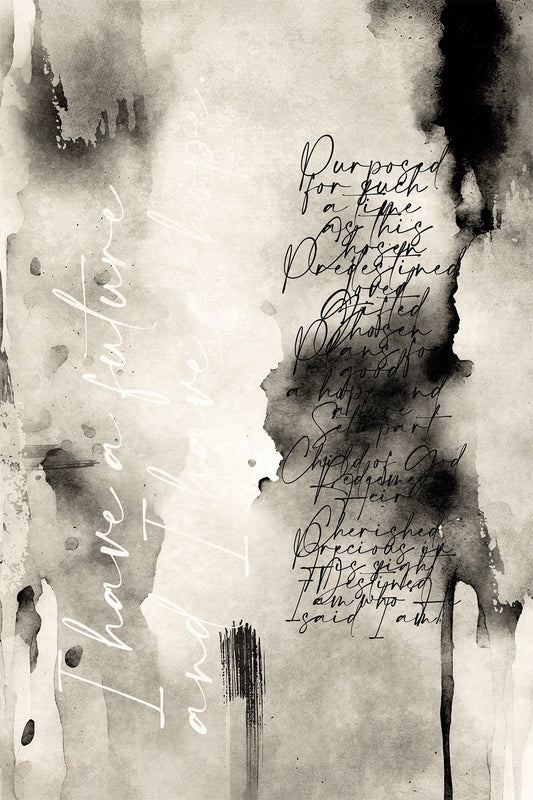 I have a future
and I have a hope.
Purposed
for such
a time
as this
Chosen
Predestined
Loved
Gifted
Chosen
Plans for
good for
a hope and
a future
Set apart
Child of God
Redeemed
Heir
Cherished
Precious in
His sight
Destined
I am who
said I am